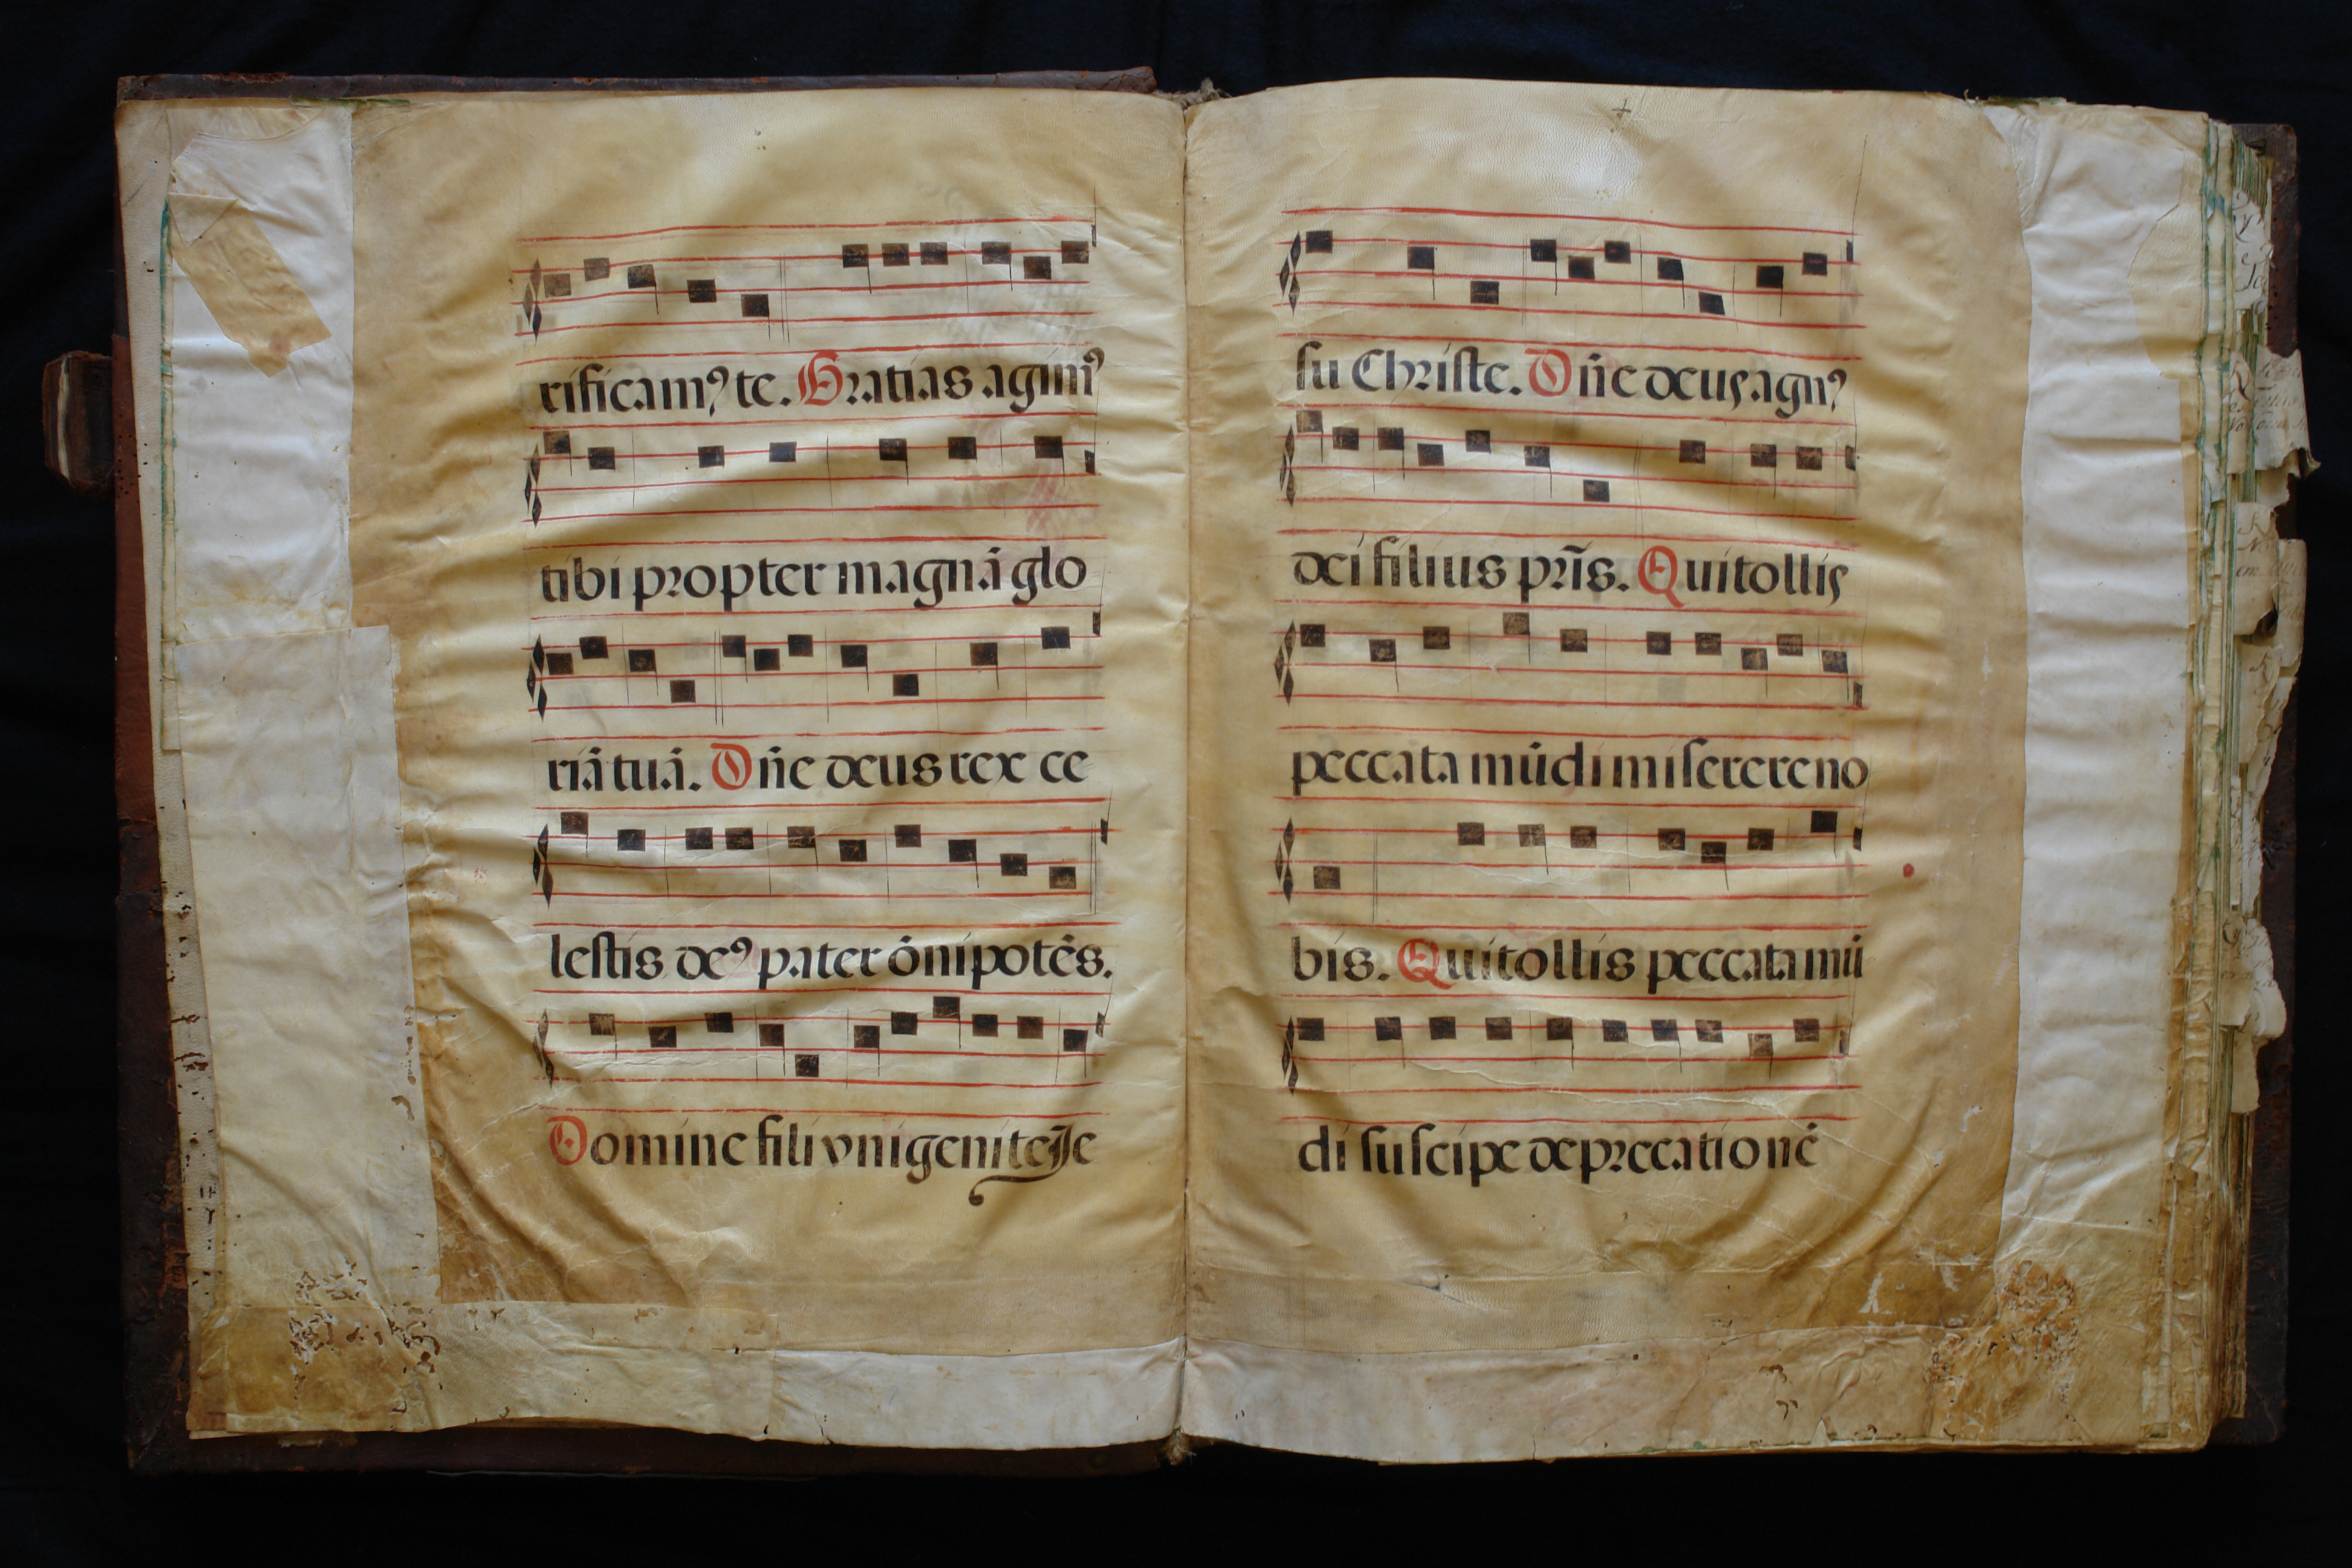 rificamꝰ te. Gratias agimꝰ
tibi propter magnā glo
riā tuā. Dñe deus rex ce
lestis deꝰ pater ōnipotēs.
Domine fili vnigenite Je
su Christe. Dñe deus agnꝰ
dei filius pr̃is. Qui tollis
peccata mūdi miserere no
bis. Qui tollis peccata mū
di suscipe deprecationē